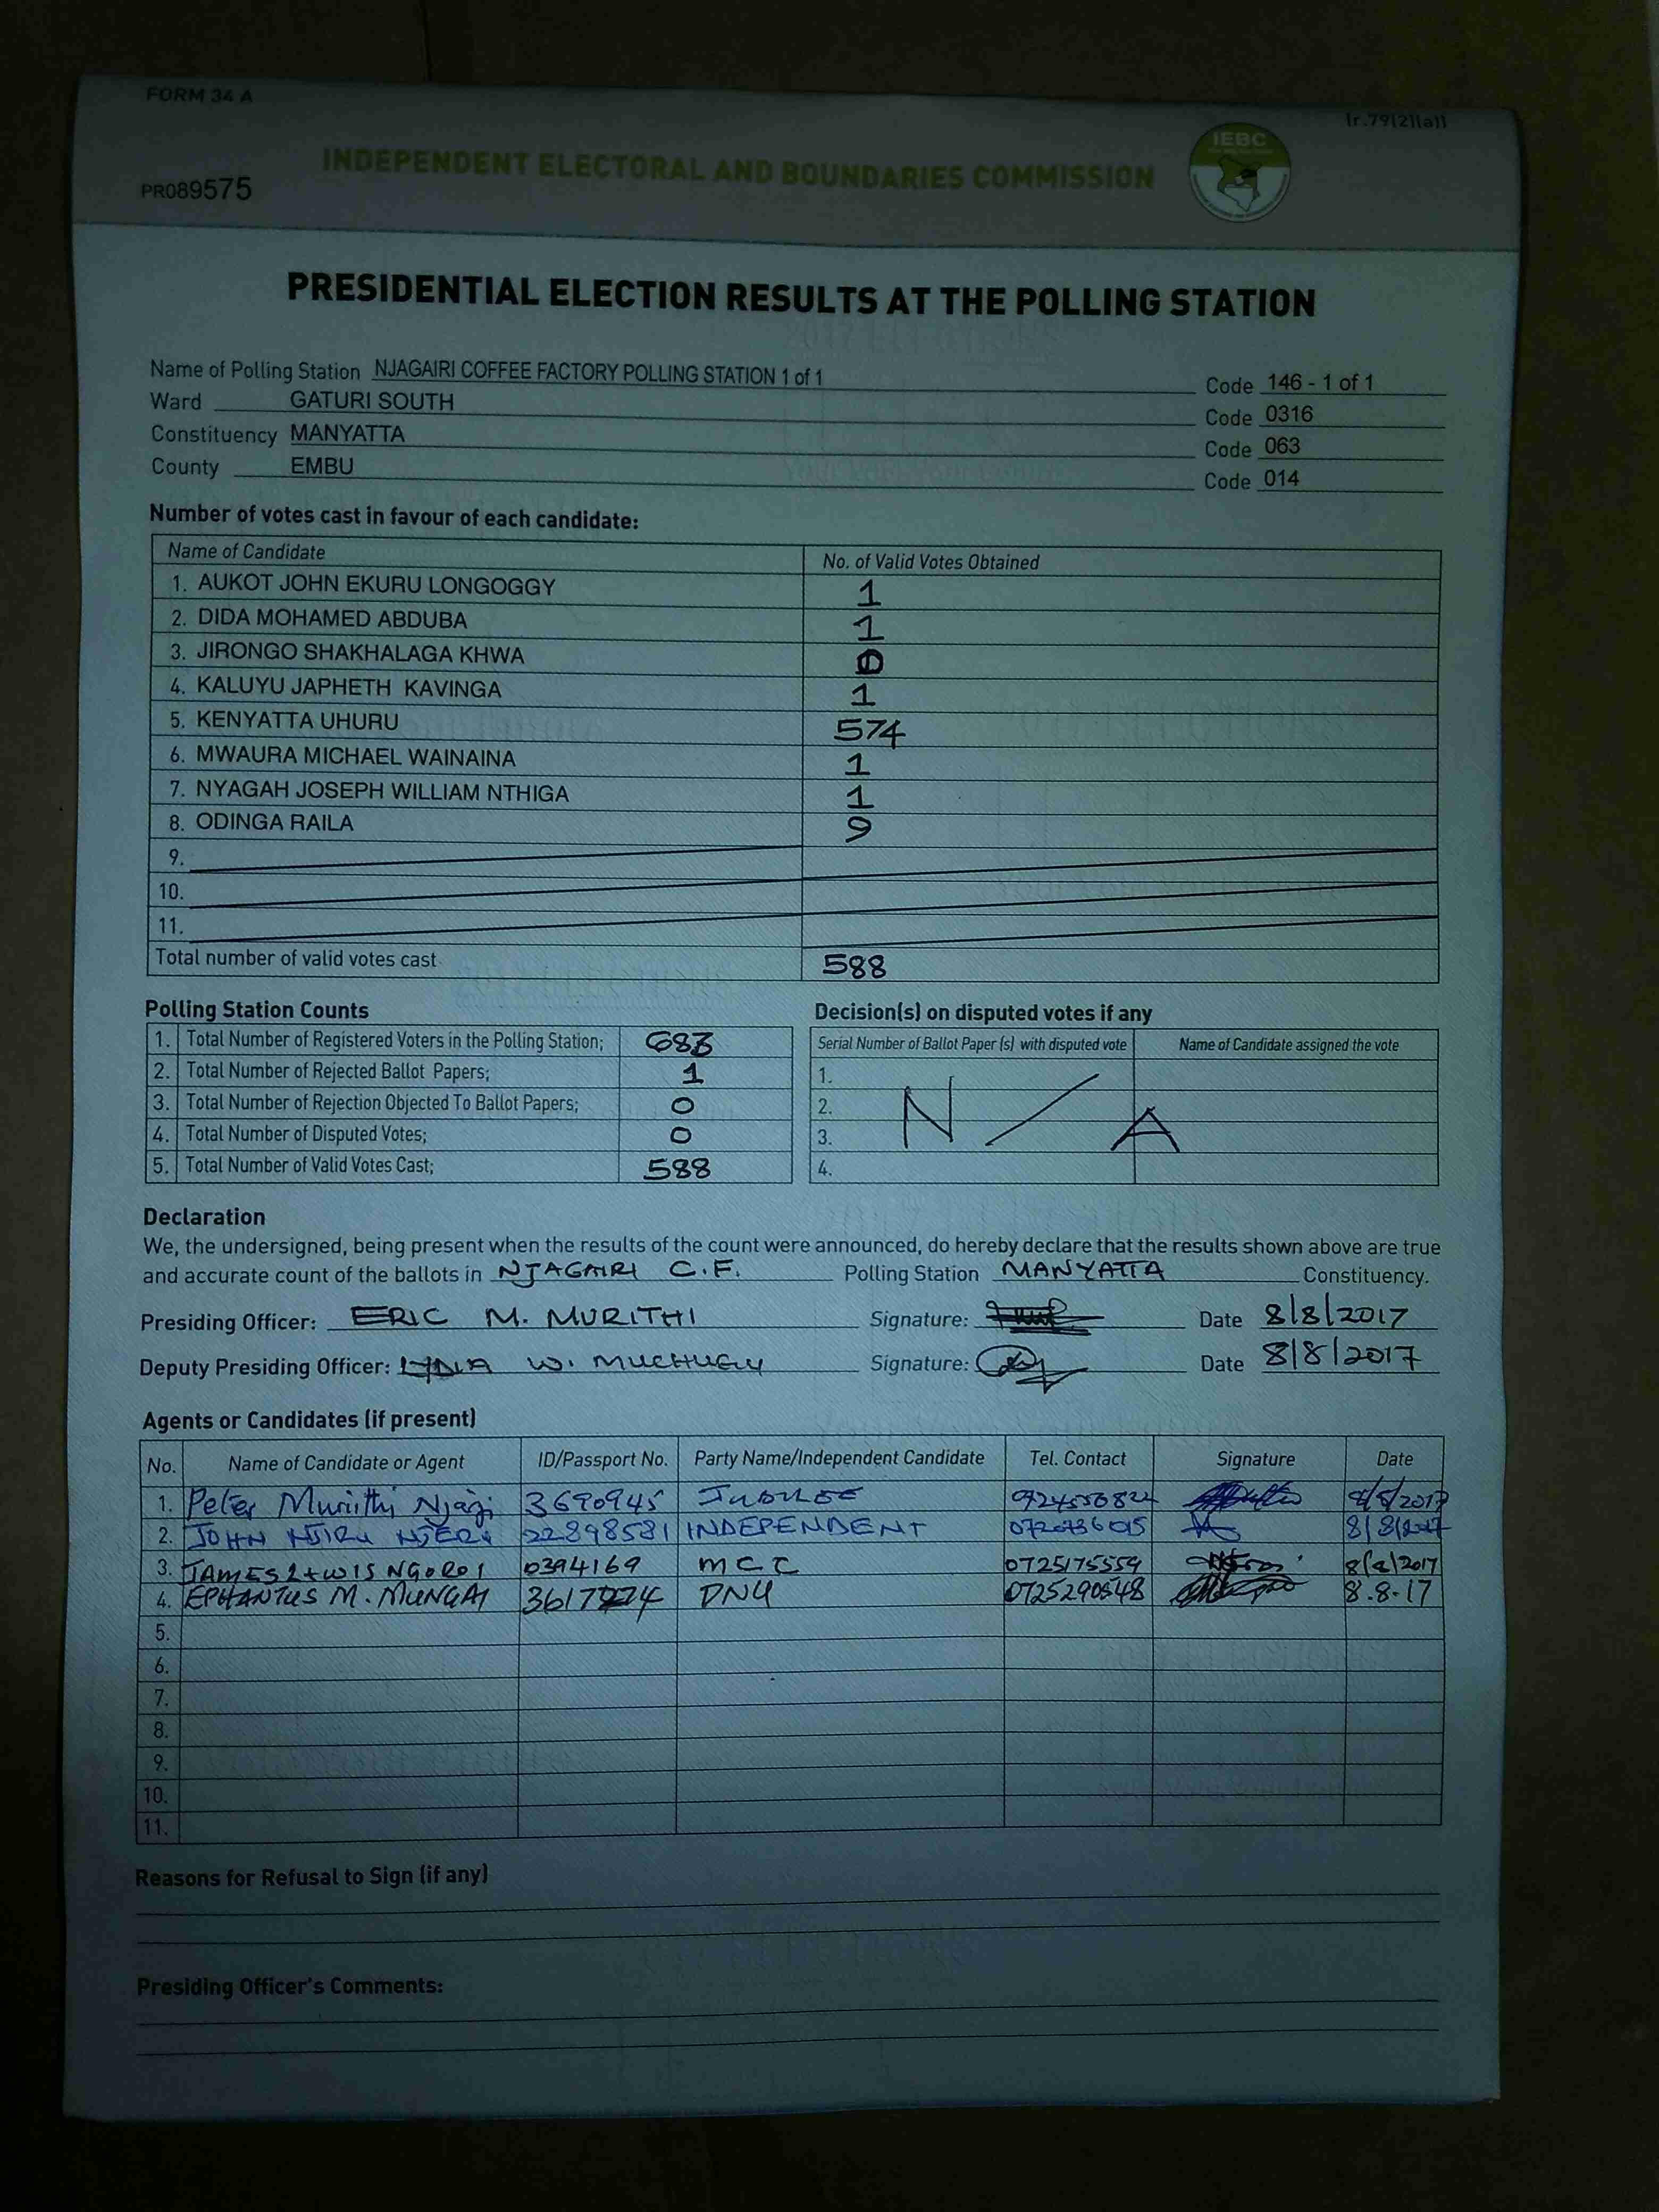 FORM 34 A
[r.79(2)(a)]
INDEPENDENT ELECTORAL AND BOUNDARIES COMMISSION
IEBC
PR089575
PRESIDENTIAL ELECTION RESULTS AT THE POLLING STATION
Name of Polling Station NJAGAIRI COFFEE FACTORY POLLING STATION 1 of 1 Code 146 - 1 of 1
Ward GATURI SOUTH Code 0316
Constituency MANYATTA Code 063
County EMBU Code 014
Number of votes cast in favour of each candidate:
Name of Candidate No. of Valid Votes Obtained
1. AUKOT JOHN EKURU LONGOGGY 1
2. DIDA MOHAMED ABDUBA 1
3. JIRONGO SHAKHALAGA KHWA
4. KALUYU JAPHETH KAVINGA 1
5. KENYATTA UHURU 574
6. MWAURA MICHAEL WAINAINA 1
7. NYAGAH JOSEPH WILLIAM NTHIGA 1
8. ODINGA RAILA 9
9.
10.
11.
Total number of valid votes cast 588
Polling Station Counts Decision(s) on disputed votes if any
Serial Number of Ballot Paper (s) with disputed vote Name of Candidate assigned the vote
1. Total Number of Registered Voters in the Polling Station; 683 1.
2. Total Number of Rejected Ballot Papers; 1 2. N / A
3. Total Number of Rejection Objected To Ballot Papers; 0 3.
4. Total Number of Disputed Votes; 0 4.
5. Total Number of Valid Votes Cast; 588
Declaration
We, the undersigned, being present when the results of the count were announced, do hereby declare that the results shown above are true
and accurate count of the ballots in NJAGAIRI C.F. Polling Station MANYATTA Constituency.
Presiding Officer: ERIC M. MURITHI Signature: Date 8/8/2017
Deputy Presiding Officer: LYDIA W. Signature: Date 8/8/2017
Agents or Candidates (if present)
No. Name of Candidate or Agent ID/Passport No. Party Name/Independent Candidate Tel. Contact Signature Date
1. Peter Muriithi Njagi 3690945 JUBILEE 0724556824 8/8/2017
2. JOHN NJIRU NJERU 22898581 INDEPENDENT 8/8/2017
3. JAMES NGOROI 0394169 MCC 0725175559 8/8/2017
4. EPHANTUS M. MUNGAI DNU 0725290548 8.8.17
5.
6.
7.
8.
9.
10.
11.
Reasons for Refusal to Sign (if any)
Presiding Officer's Comments: